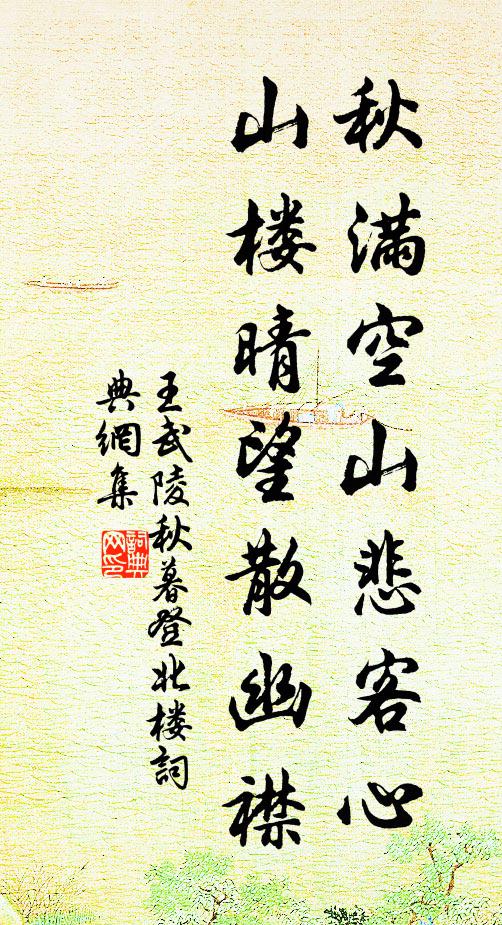 秋满空山悲客心
山楼晴望散幽襟
王武陵秋暮登北楼词
典網集
詞典
网印